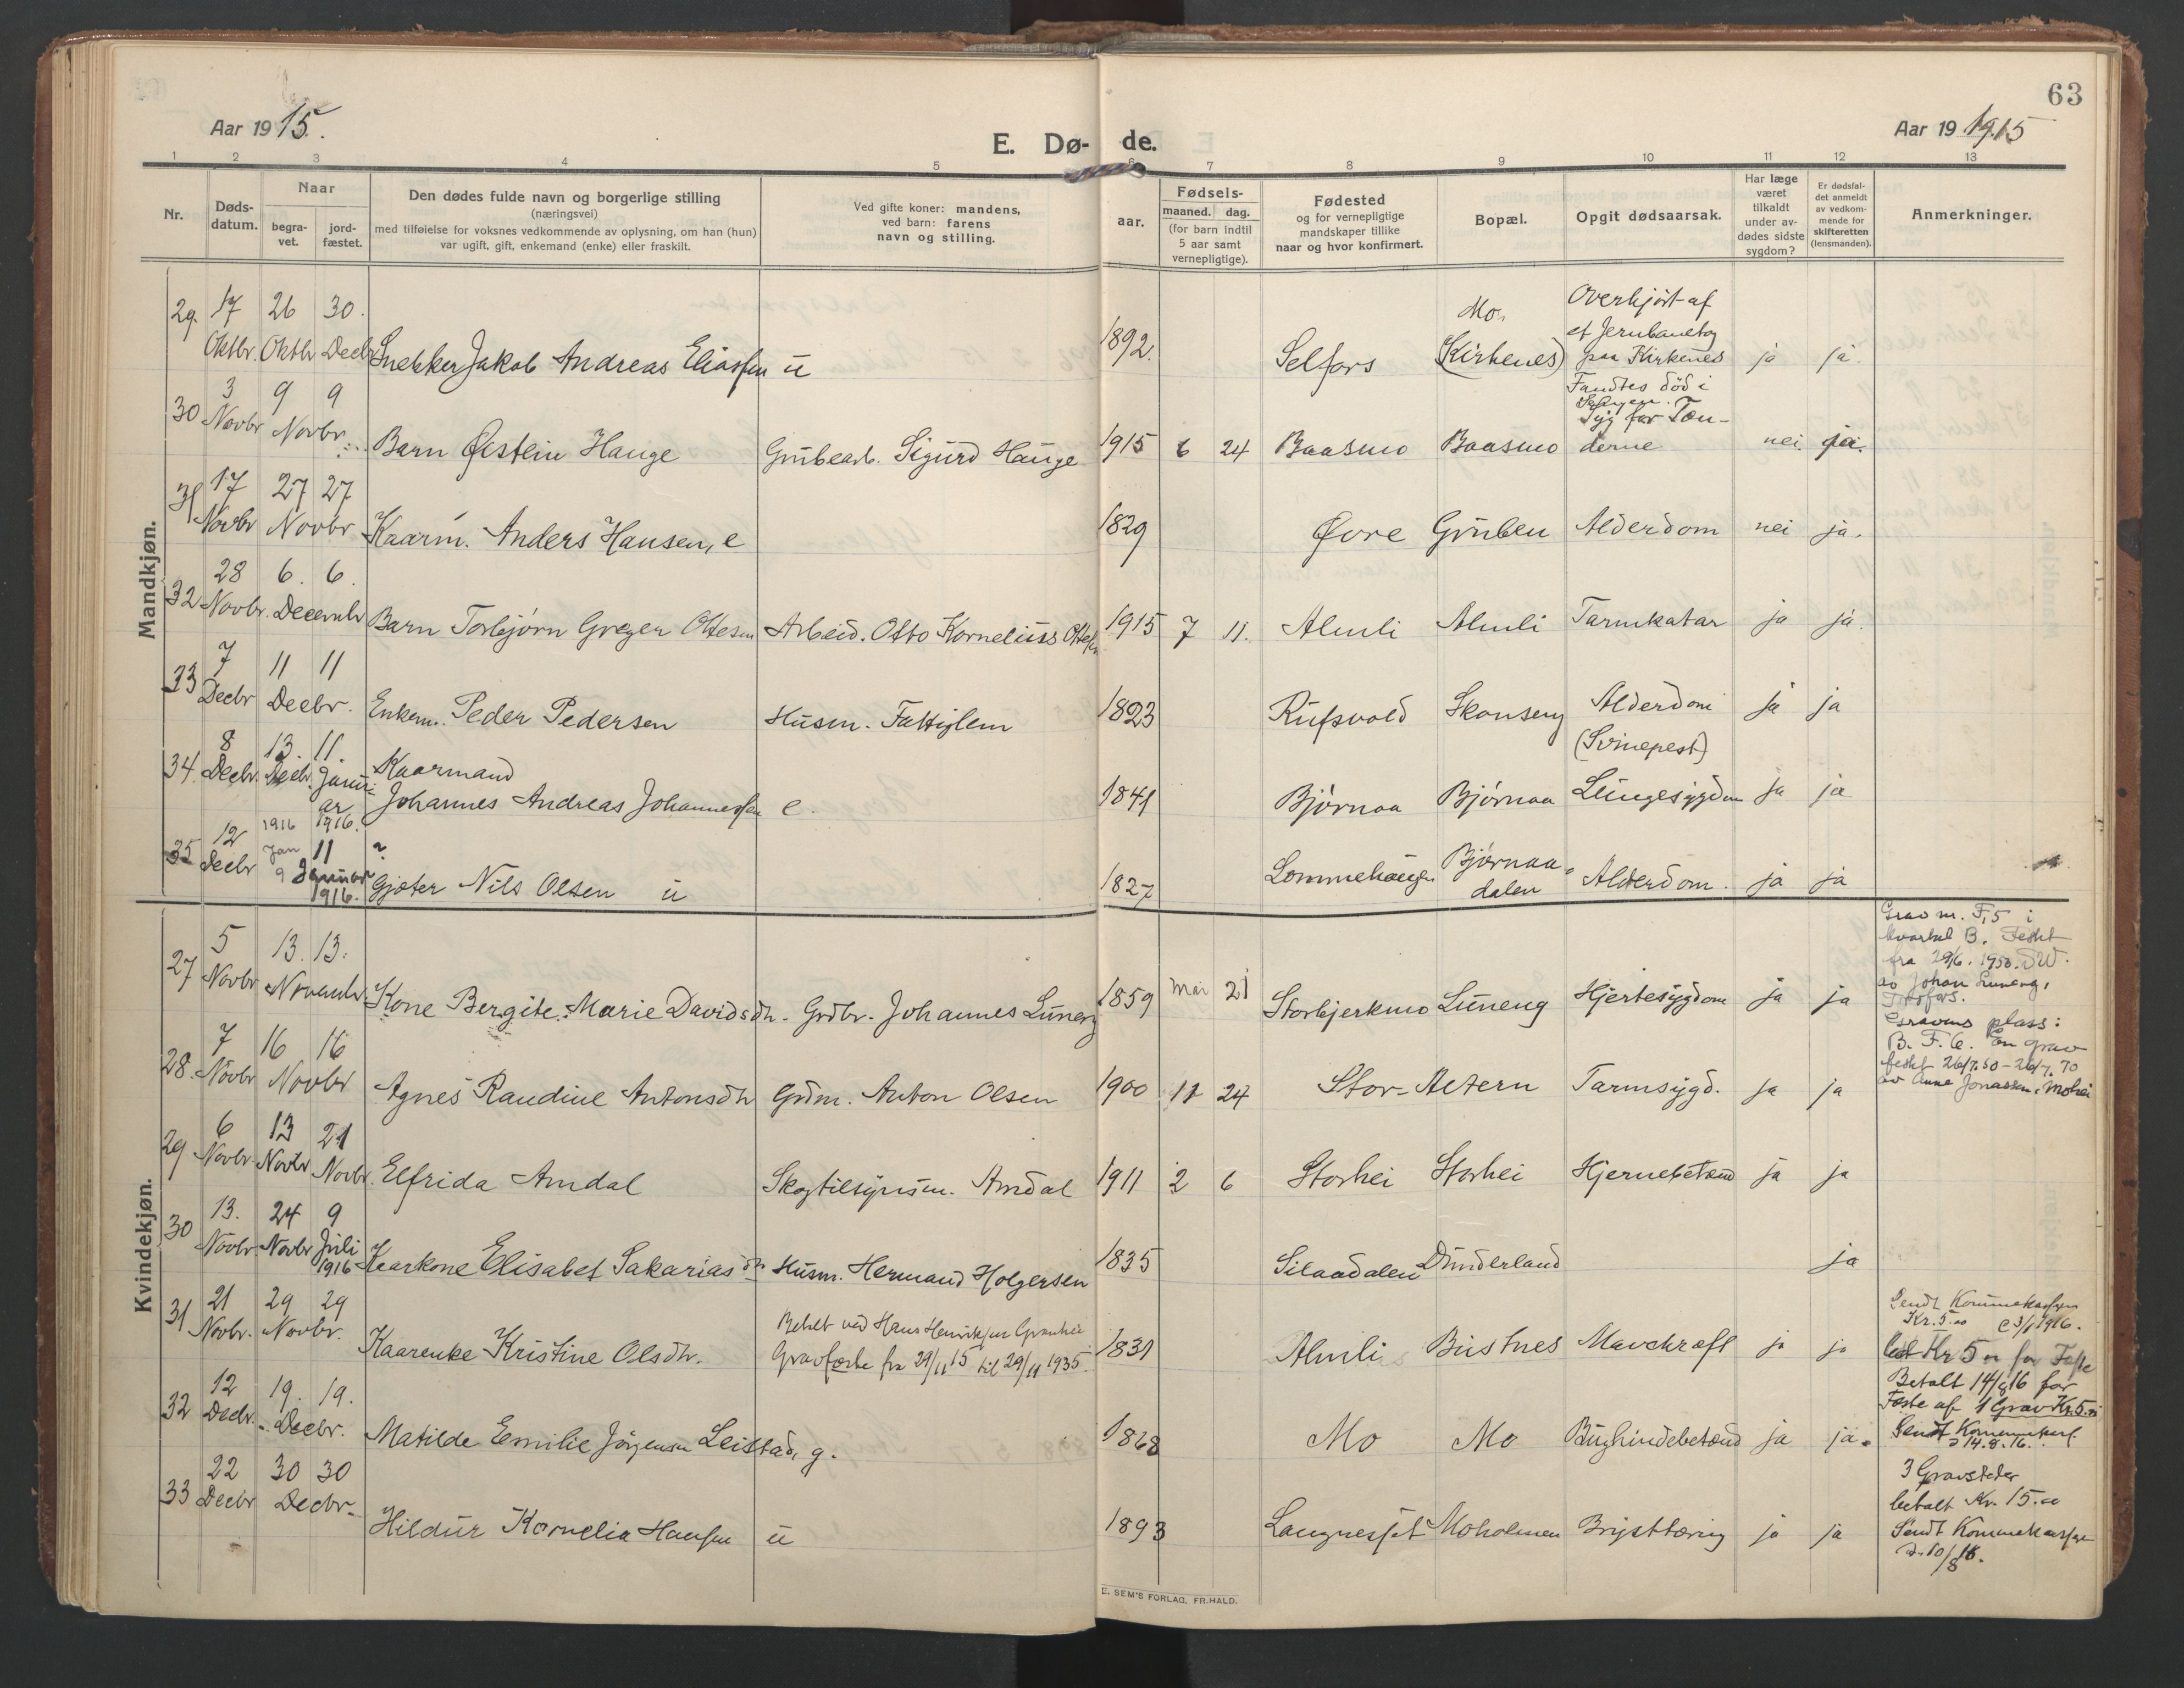 63
Aar 1915.
E. Dø- de.
Aar 19 1915
1 2 3 4 5 6 7 8 9 10 11 12 13
Nr.
Døds-datum.
Naar
begra-vet.
jord-fæstet.
Den dødes fulde navn og borgerlige stilling
(næringsvei)
med tilføielse for voksnes vedkommende av oplysning, om han (hun)
var ugift, gift, enkemand (enke) eller fraskilt.
Ved gifte koner: mandens,
ved barn: farens
navn og stilling.
Fødsels-
aar.
maaned. dag.
(for barn indtil
5 aar samt
vernepligtige).
Fødested
og for vernepligtige
mandskaper tillike
naar og hvor konfirmert.
Bopæl.
Opgit dødsaarsak.
Har læge
været
tilkaldt
under av-
dødes sidste
sygdom?
Er dødsfal-
det anmeldt
av vedkom-
mende for
skifteretten
(lensmanden).
Anmerkninger.
Mandkjøn.
29. 17 Oktbr. 26 Oktbr 30. Decbr Snekker Jakob Andreas Eliassen u 1892. Selfors Mo. (Kirkenes) Overkjørt af et Jernbanetog paa Kirkenes ja ja.
30 3 Novbr 9 9 Novbr. Barn Øistein Hauge Grubearb. Sigurd Hauge 1915 6 24 Baasmo Baasmo Fandtes død i Sengen. Syg for Tæn-derne nei. ja.
31 17 Novbr 27 27 Novbr Kaarm. Anders Hansen, e 1829 Øvre Gruben Alderdom nei ja.
32 28 Novbr. 6. 6. Decembr Barn Torbjørn Greger Ottesen Arbeid. Otto Kornelius Ottesen 1915 7 11. Almli Almli Tarmkatar ja ja.
33 7 Decbr 11 11 Decbr. Enkem. Peder Pedersen Husm. Fattiglem 1823 Rufsvold Skonseng Alderdom ja ja
34. 8 Decbr. 13. Decbr. 11. Januar 1916. Kaarmand Johannes Andreas Johannessen e. 1841 Bjørnaa Bjørnaa (Svinepest) Lungesygdom ja ja
35 12 Decbr 1916 Jan 9 11 Januar 1916. ? Gjæter Nils Olsen u 1827 Bjørnaa-dalen Alderdom. ja ja
Kvindekjøn.
27 5 Novbr 13. 13. Novembr Kone Bergite Marie Davidsdtr. Grdbr. Johannes Luneng 1859 Mai 21 Storbjerkmo Luneng Hjertesygdom ja ja
Grav nr. F,5 i
kvartal B. Festet
fra 29/6. 1950. DW.
av Johan Luneng,
Gravens plass:
B. F. 6. En grav
festet 26/7.50 - 26/7.70
av Anna Jonassen, Mohei
28. 7 Novbr 16 16 Novbr Agnes Randine Antonsdtr Grdm. Anton Olsen 1900 11 24 Stor-Aktern Tarmsygd. ja ja
29 6 Novbr. 13 Novbr 21 Novbr. Elfrida Amdal Skogtilsynsm. Amdal 1911 2 6 Storhei Storhei Hjernebetænd ja ja
30 13. Novbr. 24 Novbr 9 Juli 1916 Kaarkone Elisabet Sakariasdtr Husm. Hermand Holgersen 1835 Silaadalen Dunderland ja
31 21 Novbr. 29 29 Novbr. Kaarenke Kristine Olsdtr. Betalt ved Hans Henriksen
Gravfæste fra 29/11 15 til 29/11 1935. 1831 Almli Bustnes Mavekræft ja ja
Sendt Kommunekassen
Kr. 5.00 3/1 1916.
32 12 Decbr. 19. 19. Decbr. Matilde Emilie Jørgensen Leistad, g. 1868 Mo Mo Bughindebetænd ja ja.
Kr 5 for Fæste
Betalt 14/8 16 for
Fæste af 1 Grav Kr. 5.00
Sendt Kommunekas.
14.8.16.
33 22 Decbr 30 30 Decbr. Hildur Kornelia Hansen u 1893 Langneset Moholmen Brysttæring ja ja
3 Gravsteder
betalt Kr. 15.00
Sendt Kommunekassen
d. 10/8 16.
E. SEM'S FORLAG, FR.HALD.